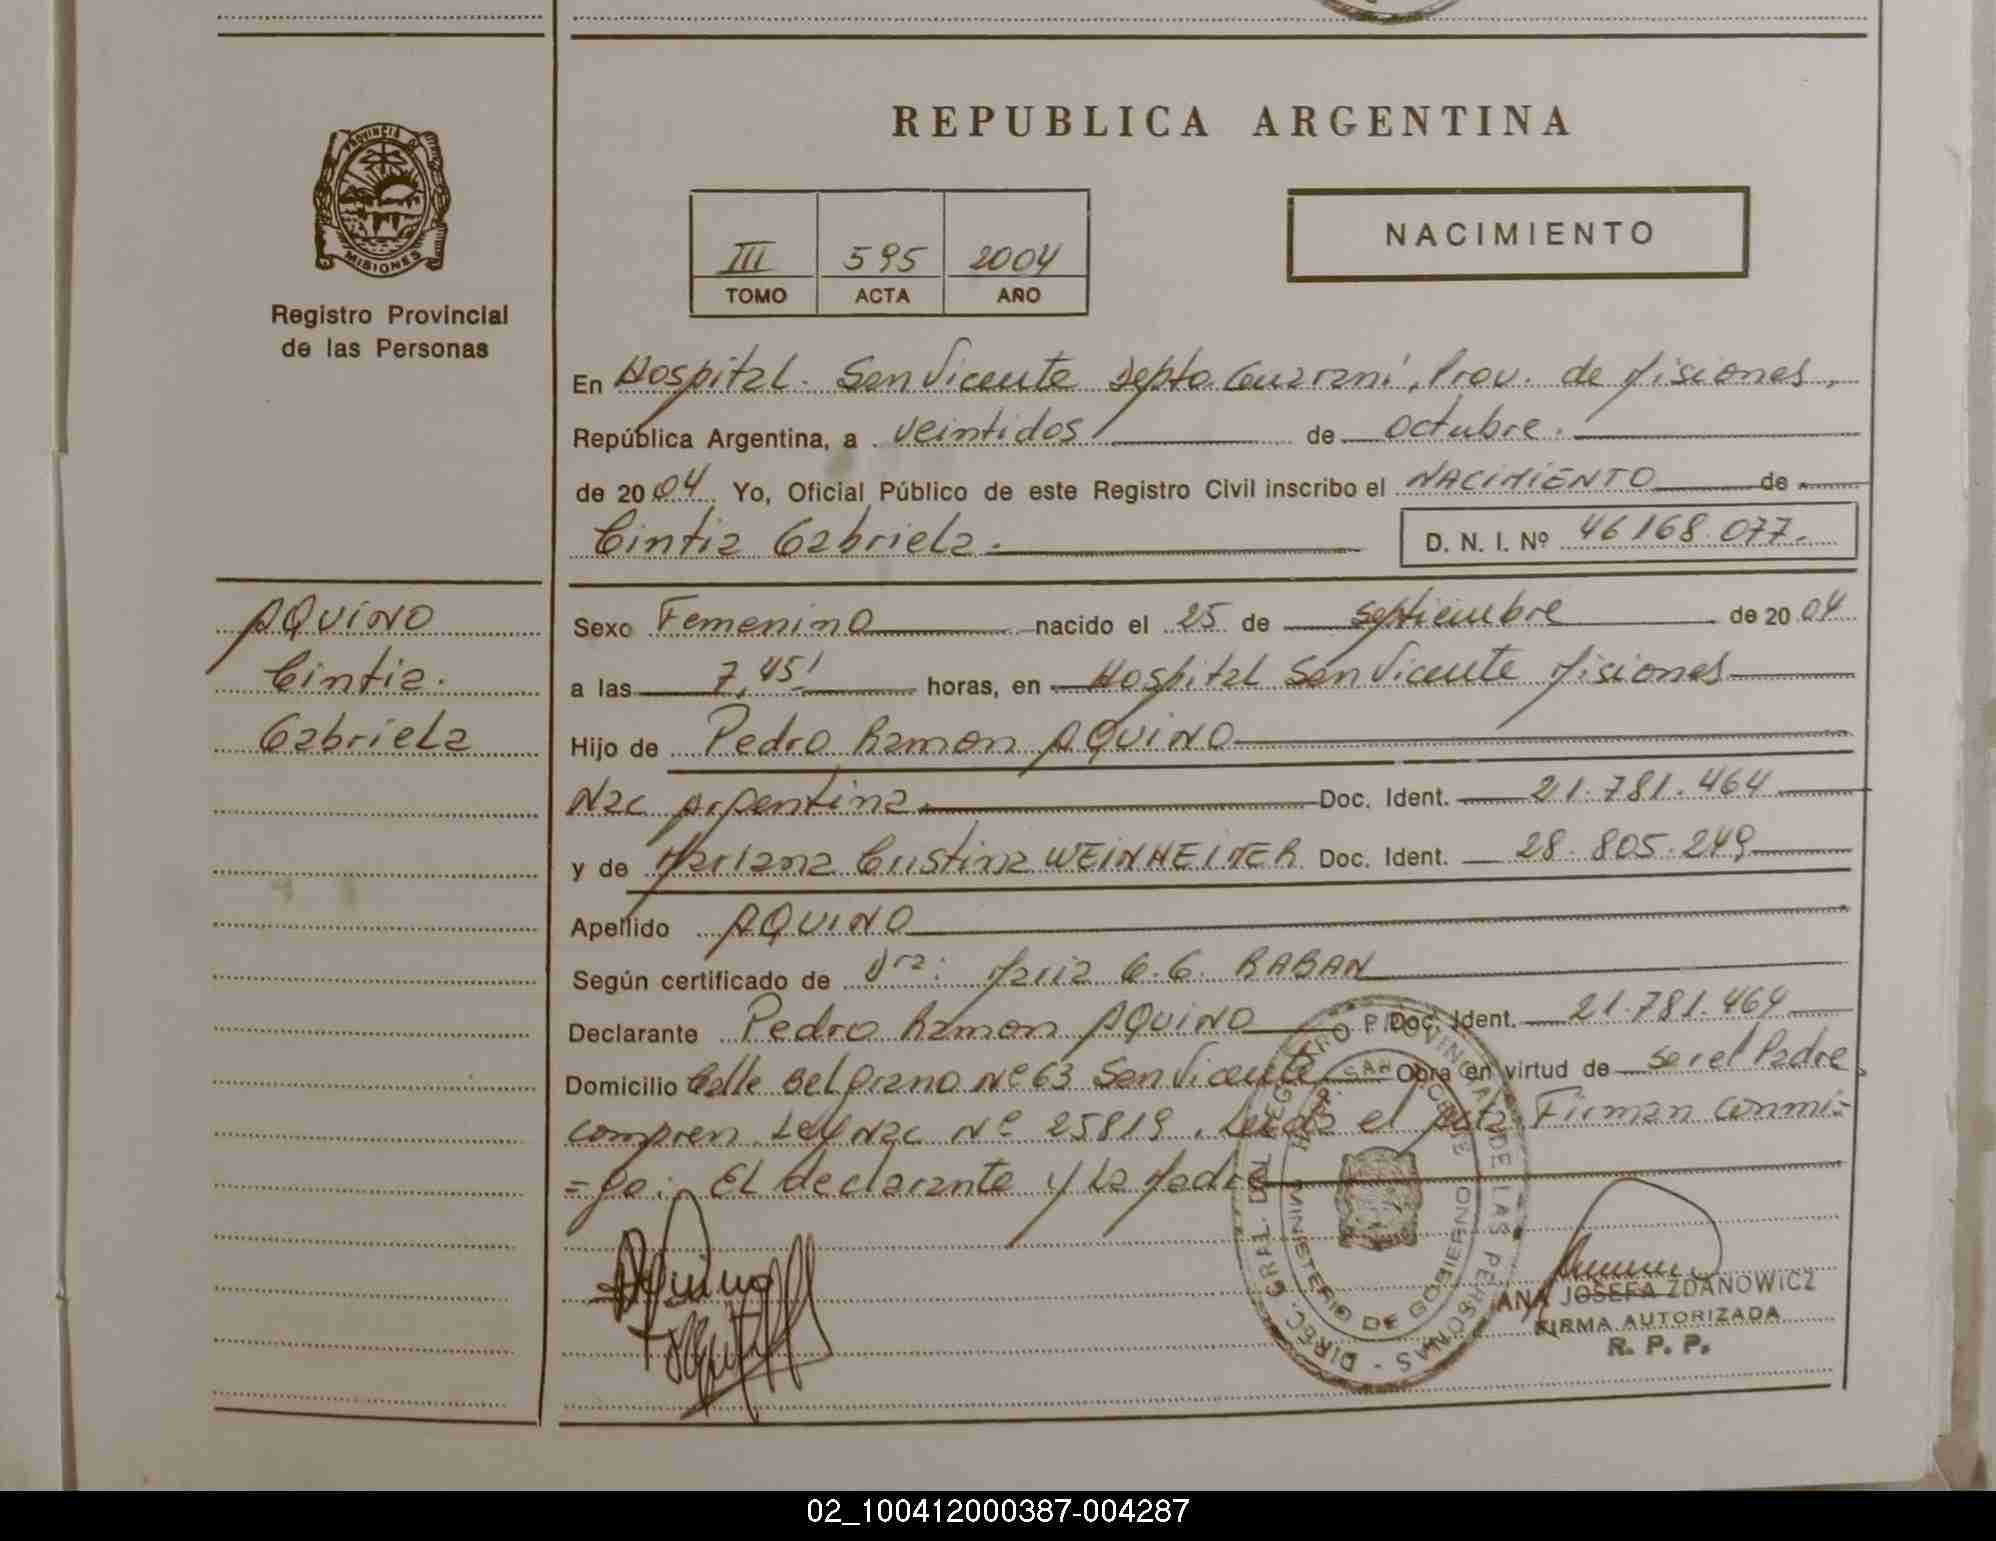 PROVINCIA DE
MISIONES
Registro Provincial
de las Personas
AQUINO
Cintia
Gabriela
REPUBLICA ARGENTINA
III 595 2004
TOMO ACTA AÑO
NACIMIENTO
En Hospital. San Vicente Depto. Guaraní, Prov. de Misiones,
República Argentina, a veintidos de octubre.
de 2004 Yo, Oficial Público de este Registro Civil inscribo el NACIMIENTO de
Cintia Gabriela.
D. N. I. Nº 46168.077.
Sexo Femenino nacido el 25 de septiembre de 2004
a las 7,45' horas, en Hospital San Vicente Misiones
Hijo de Pedro Ramon AQUINO
Nac Argentina Doc. Ident. 21.781.464
y de Mariana Cristina WEINHEIMER Doc. Ident. 28.805.249
Apellido AQUINO
Según certificado de Dra: Maria G.G. RABAN
Declarante Pedro Ramon AQUINO Doc. Ident. 21.781.464
Domicilio Calle Belgrano Nº 63 San Vicente Obra en virtud de ser el Padre
compren Ley Nac Nº 25819. Leida el Acta Firman conmi=
=go: El declarante y La Madre
Aquino
DIREC. GRAL. DEL REGISTRO PROVINCIAL DE LAS PERSONAS
MINISTERIO DE GOBIERNO
ANA JOSEFA ZDANOWICZ
FIRMA AUTORIZADA
R. P. P.
02_100412000387-004287